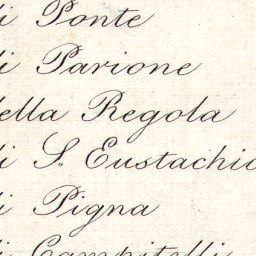 di Ponte
di Parione
della Regola
di S. Eustachio
di Pigna
di Campitelli